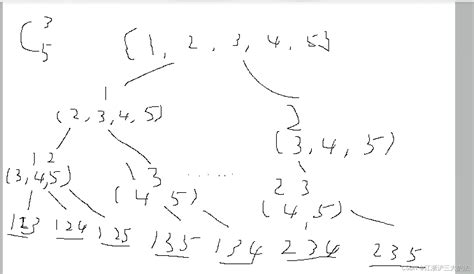 C 3 5 {1, 2, 3, 4, 5}
1 2
(2, 3, 4, 5) (3, 4, 5)
1 2 3 ...... 2 3
(3, 4, 5) (4 5) (4, 5)
123 124 125 135 134 234 235